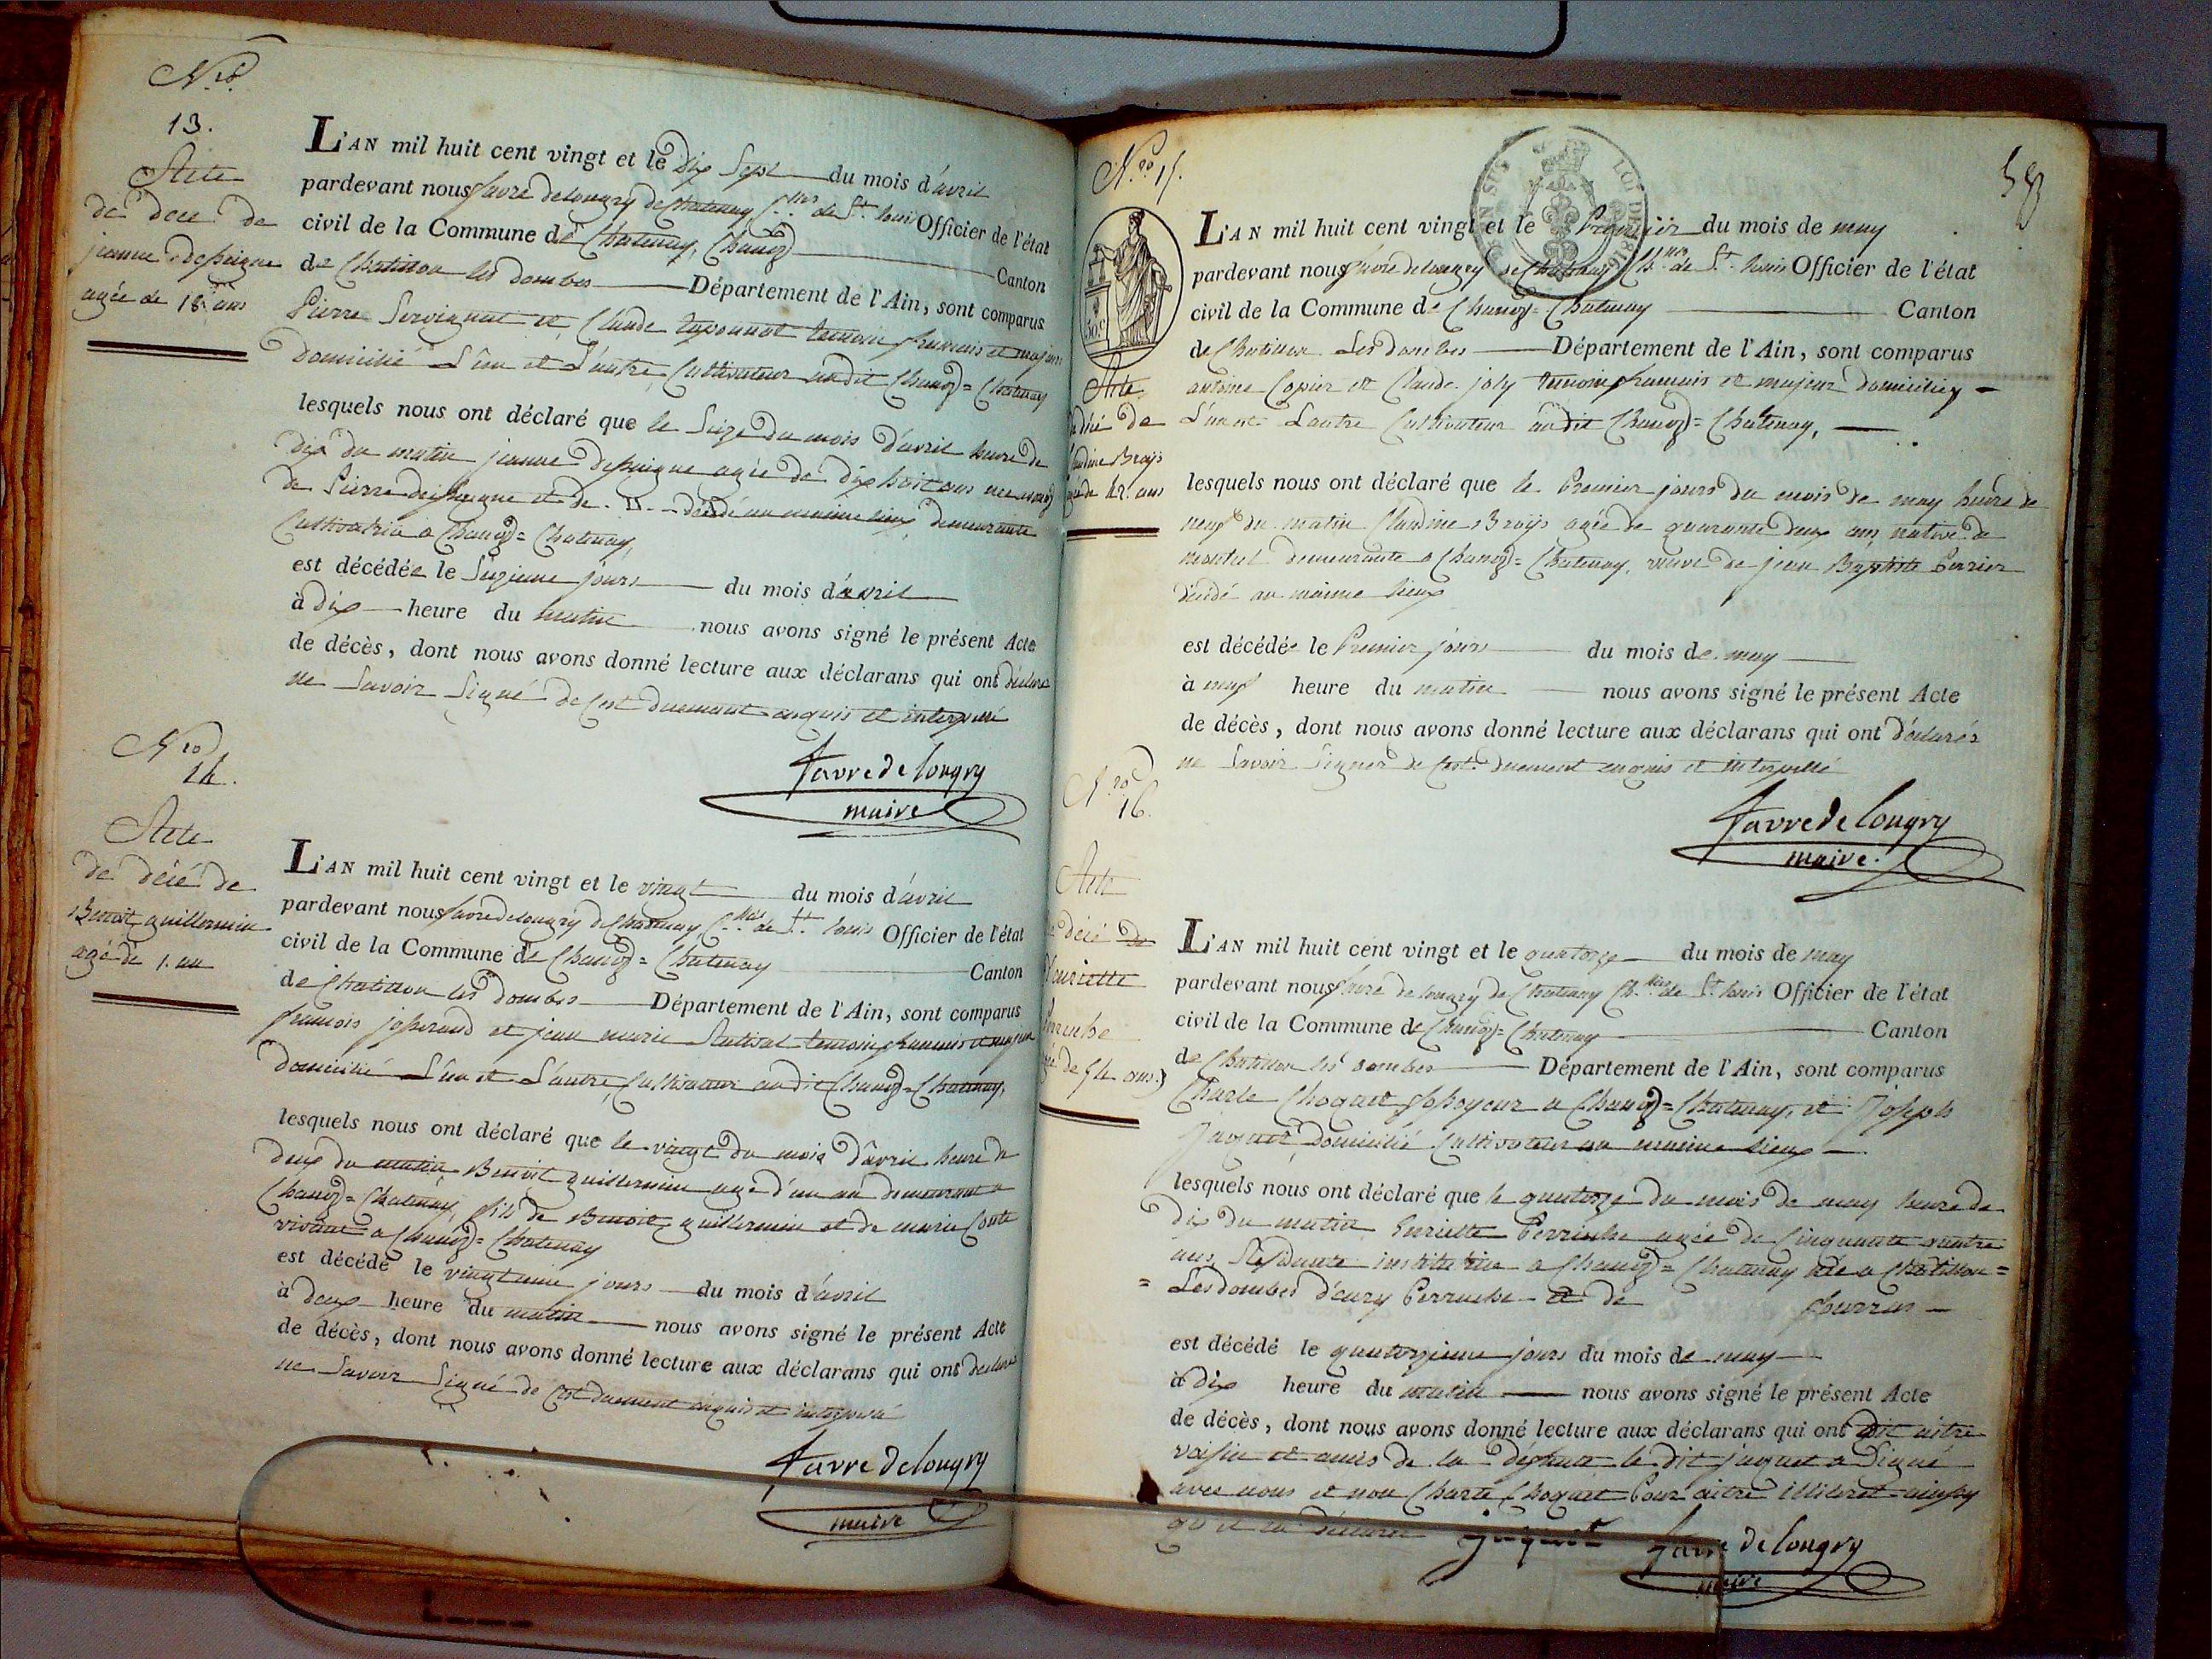 Nro.
13.
Acte
de décé de
jeanne
agée de 18. ans
L'AN mil huit cent vingt et le dix Sept du mois d'avril
pardevant nous favre delongry de Chatenay Ch.er de St. louis Officier de l'état
civil de la Commune de Chatenay, Chanoz Canton
de Chatillon les dombes Département de l'Ain, sont comparus
Pierre Servignat et Claude temoin francais et majeurs
domicilié L'un et L'autre Cultivateur audit Chanoz=Chatenay
lesquels nous ont déclaré que le Seize du mois d'avril heure de
dix du matin jeanne agée de dix huit ans
de Pierre et de décédé au maime lieux demeurante
Cultivatrice a Chanoz=Chatenay,
est décédée le Seizieme jours du mois d'avril
à dix heure du matin nous avons signé le présent Acte
de décès, dont nous avons donné lecture aux déclarans qui ont déclaré
ne Savoir Signé de Cest duemant enquis et interpellé
favre de longry
maire
Nro
14.
Acte
de décé de
Benoit guillermin
agé de 1. an
L'AN mil huit cent vingt et le vingt du mois d'avril
pardevant nous favre delongry de Chatenay Ch.er de St. louis Officier de l'état
civil de la Commune de Chanoz=Chatenay Canton
de Chatillon les dombes Département de l'Ain, sont comparus
francois josserand et jean marie temoin francais et majeur
domicilié L'un et L'autre Cultivateur audit Chanoz=Chatenay,
lesquels nous ont déclaré que le vingt du mois d'avril heure de
deux du matin Benoit guillermin agé d'un an demeurant a
Chanoz=Chatenay, fils de Benoit guillermin et de marie Conte
vivant a Chanoz=Chatenay
est décédé le vingtieme jours du mois d'avril
à deux heure du matin nous avons signé le présent Acte
de décès, dont nous avons donné lecture aux déclarans qui ont déclaré
ne Savoir Signé de Cest duement enquis et interpellé
favre de longry
maire
Nro 15.
58
Acte
de décé de
Claudine Broÿs
agée de 42. ans
L'AN mil huit cent vingt et le Premier du mois de may
pardevant nous favre delongry de Chatenay Ch.er de St. louis Officier de l'état
civil de la Commune de Chanoz=Chatenay Canton
de Chatillon Les dombes Département de l'Ain, sont comparus
antoine Copier et Claude joly temoin francais et majeur domiciliez
L'un et Lautre Cultivateur audit Chanoz=Chatenay,
lesquels nous ont déclaré que le Premier jours du mois de may heure de
neuf du matin Claudine Broÿs agée de quarante deux ans native de
montul demeurante a Chanoz=Chatenay, veuve de jean Baptiste Perrier
décédé au maime lieux
est décédée le Premier jours du mois de may
à neuf heure du matin nous avons signé le présent Acte
de décès, dont nous avons donné lecture aux déclarans qui ont déclarés
ne Savoir Signer de Cest duement enquis et interpellé
favre de longry
maire.
Nro
16.
Acte
de décé de
henriette
Perruche
agée de 54 ans
L'AN mil huit cent vingt et le quatorze du mois de may
pardevant nous favre delongry de Chatenay Ch.er de St. louis Officier de l'état
civil de la Commune de Chanoz=Chatenay Canton
de Chatillon les dombes Département de l'Ain, sont comparus
Charle Choquet fossoyeur a Chanoz=Chatenay, et Joseph
Jaquet domicilié Cultivateur au maime lieux
lesquels nous ont déclaré que le quatorze du mois de may heure de
dix du matin henriette Perruche agée de Cinquante quatre
ans Residente institutrice a Chanoz=Chatenay née a Chatillon=
=Les dombes d'enry Perruche et de fourras
est décédé le quatorzieme jours du mois de may
à dix heure du matin nous avons signé le présent Acte
de décès, dont nous avons donné lecture aux déclarans qui ont dit aitre
voisin et amis de la défunte le dit jaquet a Signé
avec nous et non Charle Choquet Pour aitre illiteré ainsy
qu'il la déclaré jaquet favre de longry
maire